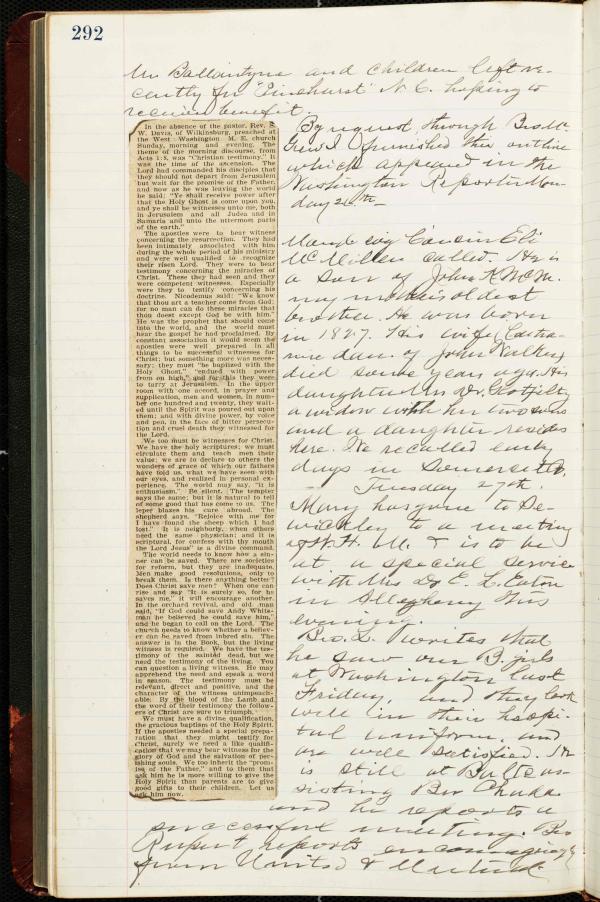 292
Mr Ballantyne and children left re-
cently for Pinehurst N. C. hoping to
receive benefit.
In the absence of the pastor, Rev. S.
W. Davis, of Wilkinsburg, preached at
the West Washington M. E. church
Sunday, morning and evening. The
theme of the morning discourse, from
Acts 1:8, was "Christian testimony." It
was the time of the ascension. The
Lord had commanded his disciples that
they should not depart from Jerusalem
but wait for the promise of the Father,
and now as he was leaving the world
he said: "Ye shall receive power after
that the Holy Ghost is come upon you,
and ye shall be witnesses unto me, both
in Jerusalem and all Judea and in
Samaria and unto the uttermost parts
of the earth."
The apostles were to bear witness
concerning the resurrection. They had
been intimately associated with him
during the whole period of his ministry
and were well qualified to recognize
their risen Lord. They were to bear
testimony concerning the miracles of
Christ. These they had seen and they
were competent witnesses. Especially
were they to testify concerning his
doctrine. Nicodemus said: "We know
that thou art a teacher come from God;
for no man can do these miracles that
thou doest except God be with him."
He was the prophet that should come
into the world, and the world must
hear the gospel he had proclaimed. By
constant association it would seem the
apostles were well prepared in all
things to be successful witnesses for
Christ; but something more was neces-
sary; they must "be baptized with the
Holy Ghost," "endued with power
from on high," and for this they were
to tarry at Jerusalem. In the upper
room with one accord, in prayer and
supplication, men and women, in num-
ber one hundred and twenty, they wait-
ed until the Spirit was poured out upon
them; and with divine power, by voice
and pen, in the face of bitter persecu-
tion and cruel death they witnessed for
the Lord.
We too must be witnesses for Christ.
We have the holy scriptures; we must
circulate them and teach men their
value; we are to declare to others the
wonders of grace of which our fathers
have told us, what we have seen with
our eyes, and realized in personal ex-
perience. The world may say, "it is
enthusiasm." Be silent. The tempter
says the same; but it is natural to tell
of some good that has come to us. The
leper blazes his cure abroad. The
shepherd says, "Rejoice with me for
I have found the sheep which I had
lost." It is neighborly, when others
need the same physician; and it is
scriptural, for confess with thy mouth
the Lord Jesus" is a divine command.
The world needs to know how a sin-
ner can be saved. There are societies
for reform, but they are inadequate.
Men make good resolutions, only to
break them. Is there anything better?
Does Christ save men? When one can
rise and say "It is surely so, for he
saves me," it will encourage another.
In the orchard revival, and old man
said, "If God could save Andy Whits-
man he believed he could save him,"
and he began to call on the Lord. The
church needs to know whether a believ-
er can be saved from inbred sin. The
answer is in the Book, but the living
witness is required. We have the tes-
timony of the sainted dead, but we
need the testimony of the living. You
can question a living witness. He may
apprehend the need and speak a word
in season. The testimony must be
relevant, direct and positive, and the
character of the witness unimpeach-
able. By the blood of the Lamb and
the word of their testimony the follow-
ers of Christ are sure to triumph.
We must have a divine qualification,
the gracious baptism of the Holy Spirit.
If the apostles needed a special prepa-
ration that they might testify for
Christ, surely we need a like qualifi-
cation that we may bear witness for the
glory of God and the salvation of per-
ishing souls. We too inherit the "prom-
ise of the Father," and to them that
ask him he is more willing to give the
Holy Spirit than parents are to give
good gifts to their children. Let us
ask him now.
By request through Bro Mc
I furnished this outline
which appeared in the
Washington Reporter Mon-
day 26th.
Monday Cousin Eli
McMillen called. He is
a son of John K McM.
my mothers oldest
brother. He was born
in 1827. His wife
dau. of John Walker
died some years ago. His
daughter Mrs Dr.
a widow with her two sons
and a daughter resides
here. We recalled early
days in Somerset
Tuesday 27th.
Mary has gone to Se-
wickley to a meeting
of W. H. M. & is to be
at a special service
with Mrs Dr E. L. Eaton
in Allegheny this
evening.
Bro. S. writes that
he saw our B. girls
at Washington last
Friday, and they look
well in their hospi-
tal uniform, and
are well satisfied. He
is still at Butte as-
sisting Bro
and he reports a
successful meeting. Bro
Rupert reports encouragingly
from United &